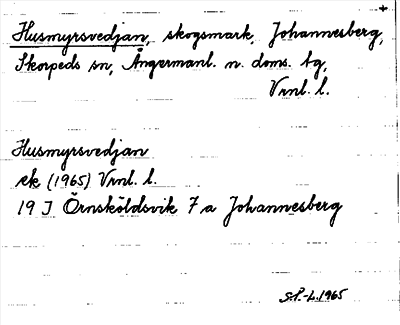 Husmyrsvedjan, skogsmark, Johannesberg,
Skorpeds sn, Ångermanl. n. doms. tg,
Vrnl. l.
Husmyrsvedjan
ek (1965) Vrnl. l.
19 J Örnsköldsvik 7 a Johannesberg
S.P.-L. 1965